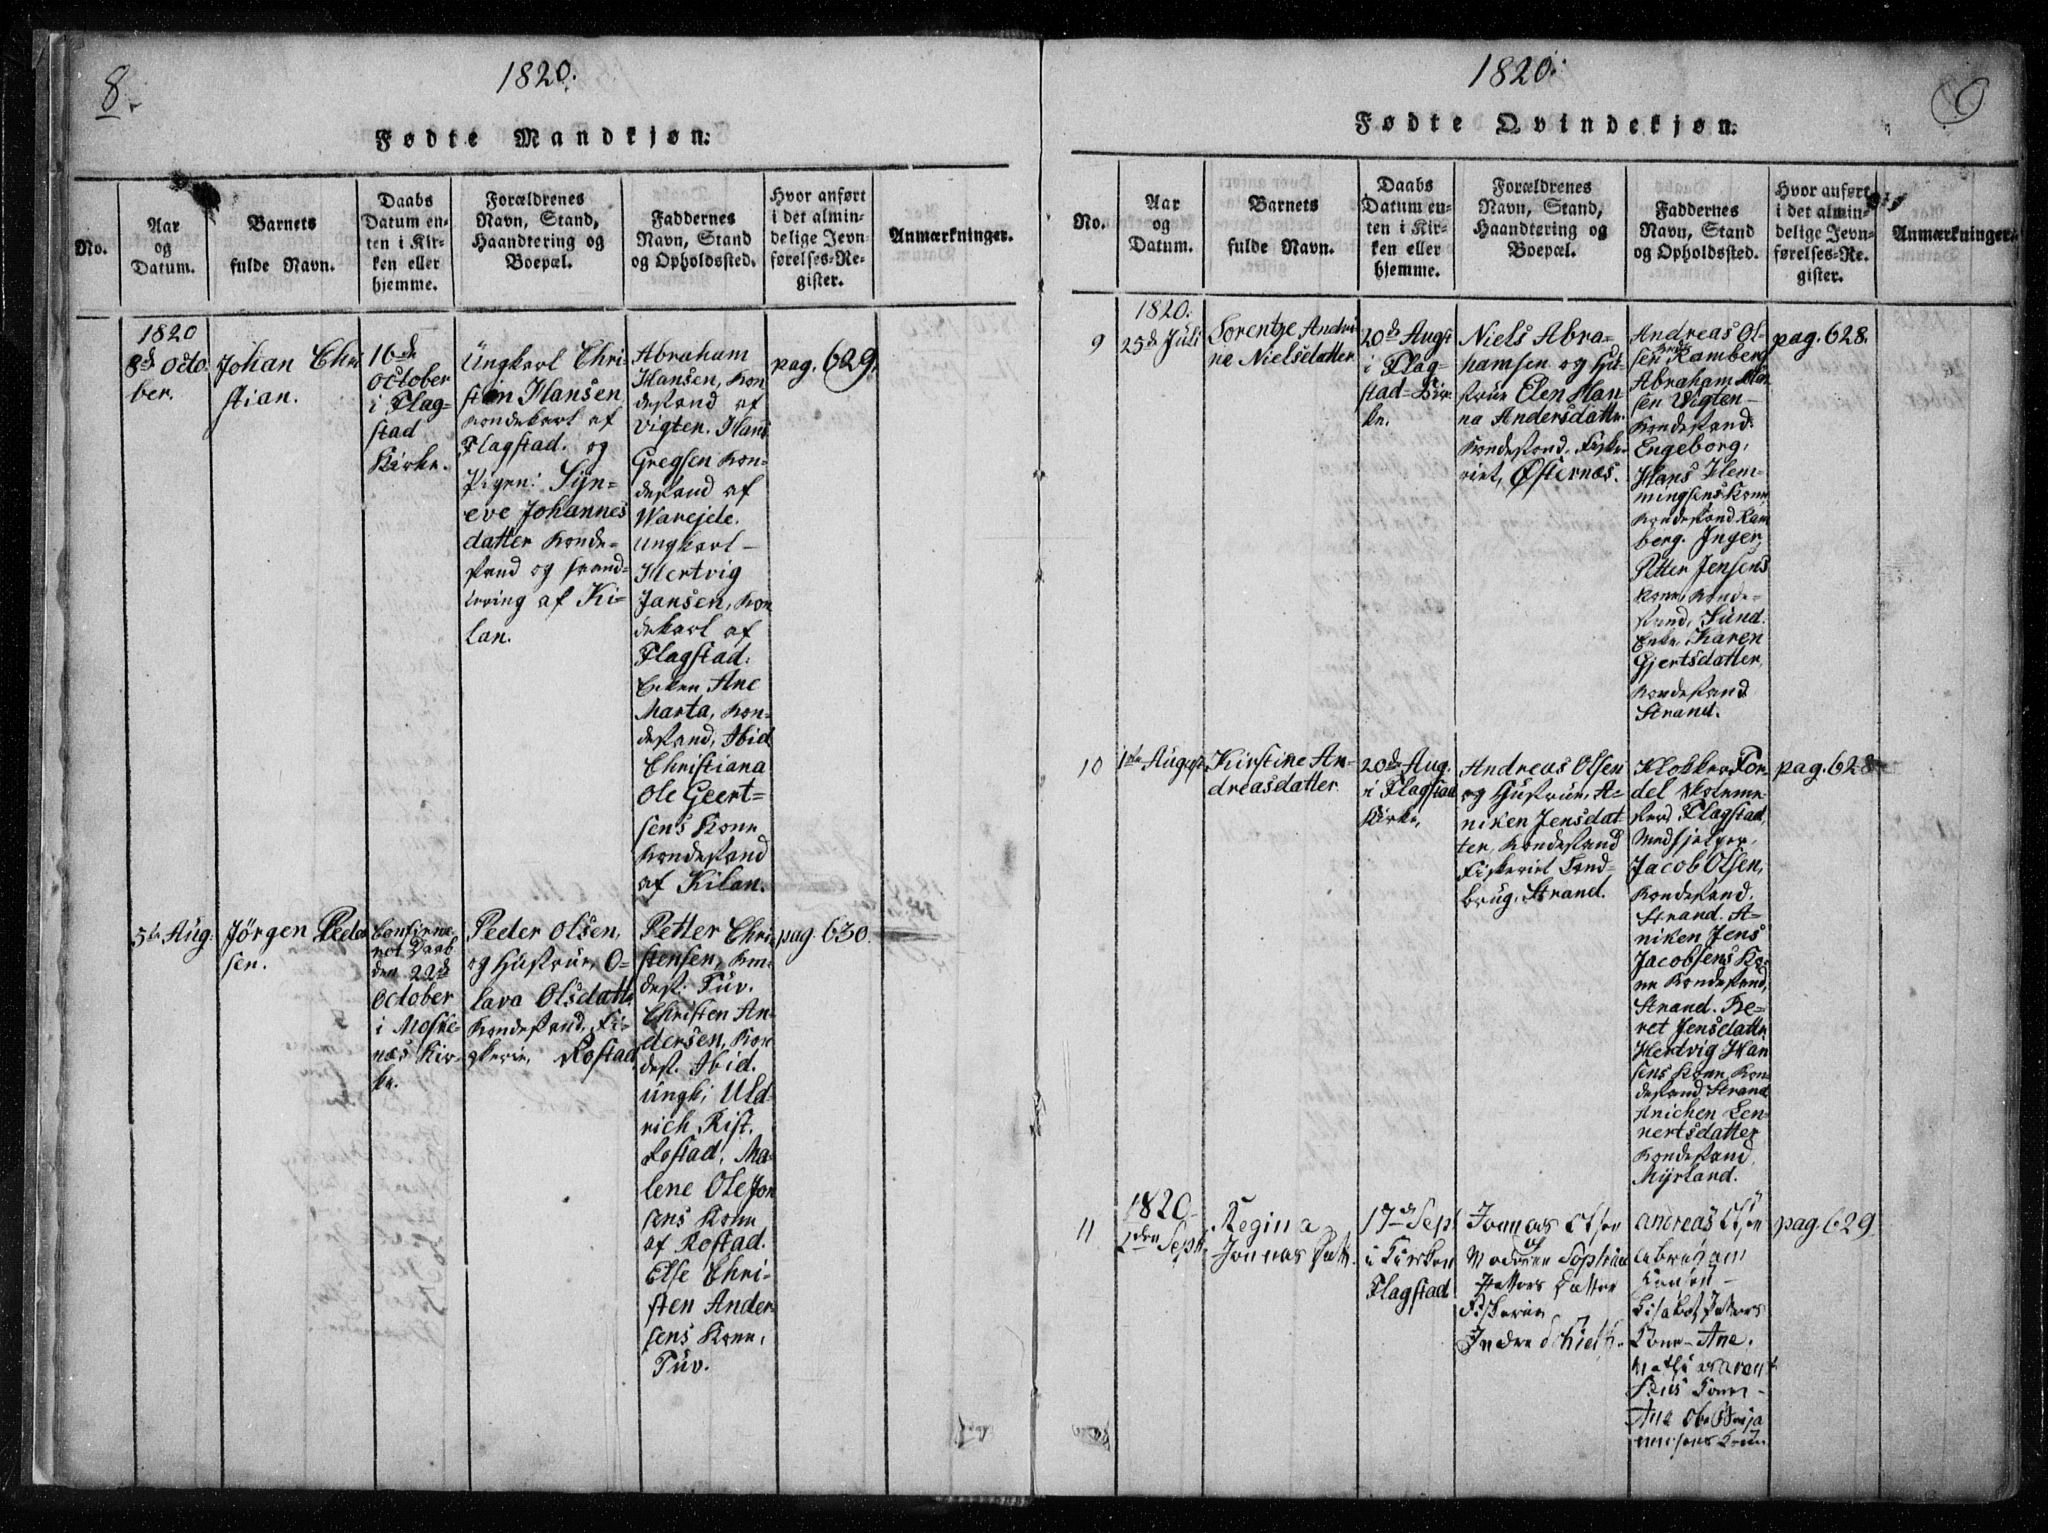 8.
1820.
Fødte Mandkjøn:
No.
Aar
og
Datum.
Barnets
fulde Navn.
Daabs
Datum en-
ten i Kir-
ken eller
hjemme.
Forældrenes
Navn, Stand,
Haandtering og
Boepæl.
Faddernes
Navn, Stand
og Opholdssted.
Hvor anført
i det almin-
delige Jevn-
førelses-Re-
gister.
Anmærkninger.
1820
8de Octo-
ber.
Johan Chri
stian.
16de
October
i Flag-
stad
Kirke.
Ungkarl Chri-
stian Hansen
Kondekarl af
Flagstad. og
Pigen: Syn-
eve Johannes
datter Konde-
stand og
af Ki-
lan.
Abraham
Hansen, Kon-
destand af
Vigten. Hans
Gregsen Kon-
destand af
Warejde.
Ungkarl-
Hertvig
Jansen, Kon
dekarl af
Flagstad.
Enken Ane
Marta, Kon-
destand, Ibid
Christiana
Ole Geert-
sens Kone
Kondestand
af Kilan.
pag. 629.
5te Aug.
Jörgen Peder
sen.
Confirme-
ret Daab
den 22de
October
i Moske-
næs Kir-
ke.
Peder Olsen,
og Hustrue, O-
lava Olsdatt.
Kondestand, Fi-
skerie, Rostad
Petter Chri-
stensen, Kon-
dest. Tuv.
Christen An-
dersen, Kon
dest. Ibid.
Ungk; Uld-
rich Rist.
Rostad, Ma-
lene Ole Jon
sens Kone
af Rostad.
Else Chri-
sten Ander
sens Kone,
Tuv.
pag. 630.
1820.
Fødte Qvindekjøn:
No.
Aar
og
Datum.
Barnets
fulde Navn.
Daabs
Datum en-
ten i Kir-
ken eller
hjemme.
Forældrenes
Navn, Stand,
Haandtering og
Boepæl.
Faddernes
Navn, Stand
og Opholdssted.
Hvor anført
i det almin-
delige Jevn-
førelses-Re-
gister.
Anmærkninger.
9
1820.
25de Juli
Lorentze Andri
ne Nielsdatter
20de Augst
i Flag-
stad Kir-
ke.
Niels Abra-
hamsen og Hu-
strue Elen Han
na Andersdatte.
Kondestand. Fiske
riet, Østernæs.
Andreas Ol-
sen Ramberg
Abraham Han
sen Vigten-
Kondestand.
Engeborg,
Hans Hem-
mingsens Kone
Kondestand Ram
berg. Inger
Petter Jensens
Kone, Konde-
stand, Sund.
Enke Karen
Gjertsdatter,
Kondestand
Strand.
pag. 628.
10
1ste August
Kirstine An-
dreasdatter
20de Aug.
i Flagstad
Kirke,
Andreas Olsen
og Hustrue, A-
niken Jensdat
ter, Kondestand
Fiskeriet Land-
brug, Strand.
Klokker Tor-
del Skoleme-
ster, Flagstad,
Medhjelper,
Jacob Olsen,
Kondestand,
Strand. A-
niken Jens
Jacobsens Ko-
ne Kondestand,
Strand. Be-
ret Jensdatte
Hertvig Han
sens Kone, Kon-
destand Strand
Anichen Len-
nertsdatter
Kondestand,
Myrland.
pag. 628
11
1820
den Septr.
Regina
Jonnas Datt.
17de Sept
i Kirken
Flagstad
Jonnas Olsen
og
Moderen Sophia
Petters Datter
Fiskerie
Indre
Andreas Olsen
Abraham
Hansen-
Elisabet Petters
Kone- Ane.
sens Kone-
Ane Ole Benja
minsens Kone
pag. 629